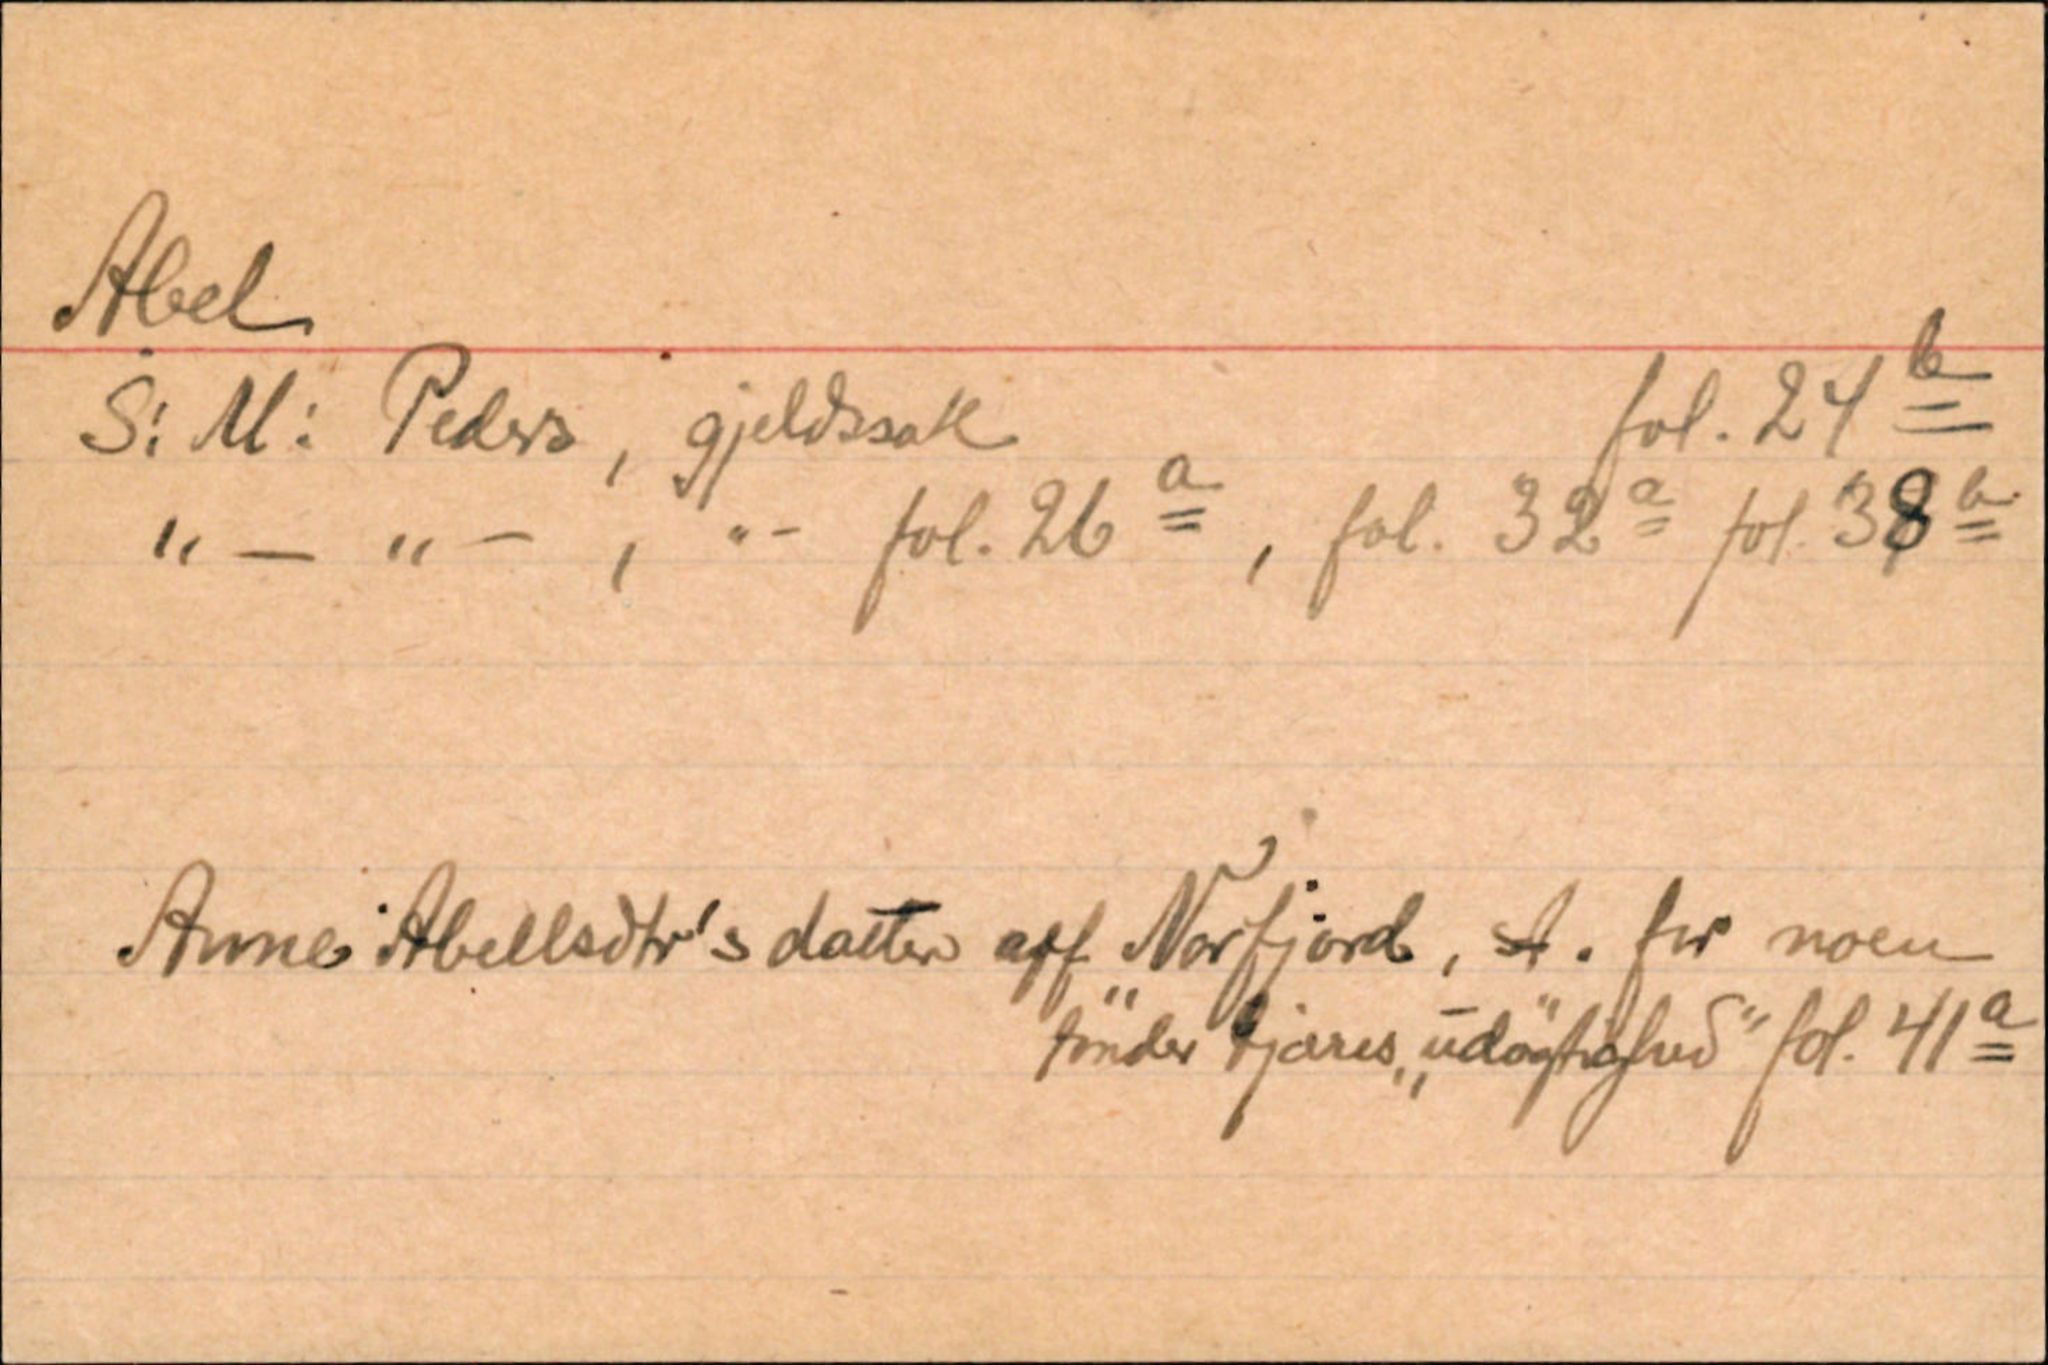 Abel
S: M: Peders, gjeldssak fol. 24 b
" — " — , " - fol. 26 a, fol. 32 a fol. 38 b
Anne Abellsdtr's datter aff Norfjord, st. for noen
tønder tjæres „udøgtighed" fol. 41 a